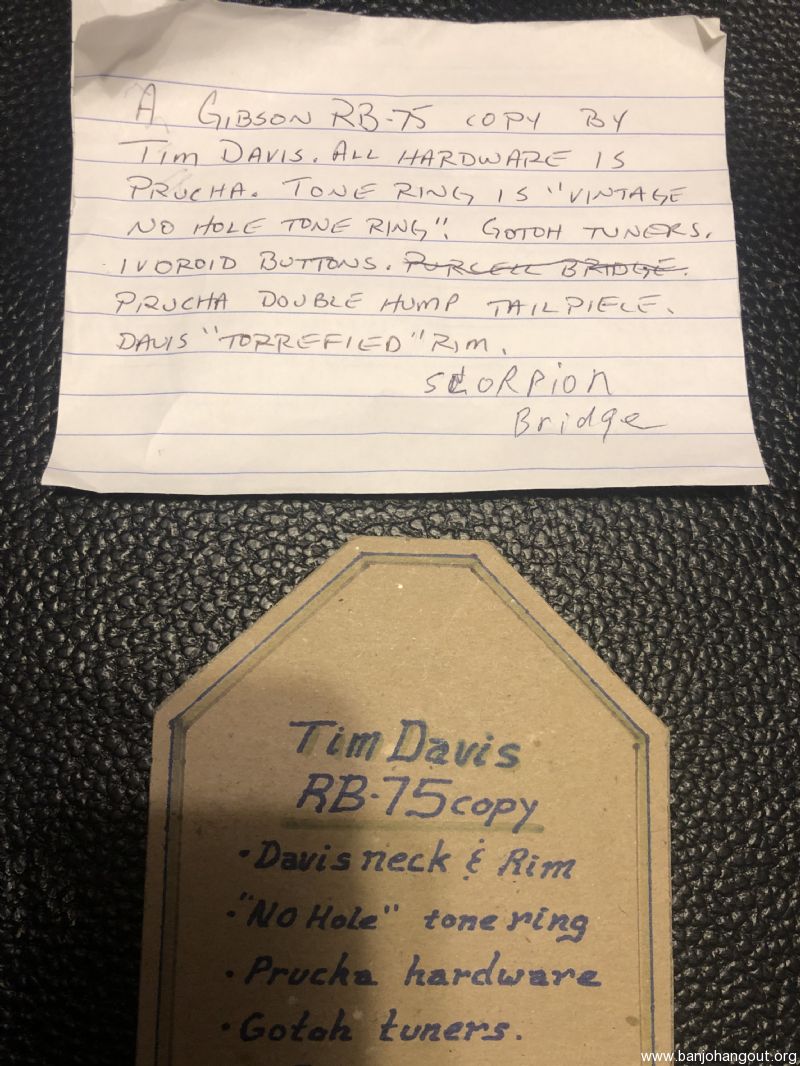 A GIBSON RB-75 COPY BY
TIM DAVIS. ALL HARDWARE IS
PRUCHA. TONE RING IS "VINTAGE
NO HOLE TONE RING". GOTOH TUNERS.
IVOROID BUTTONS. PURCELL BRIDGE.
PRUCHA DOUBLE HUMP TAILPIECE.
DAVIS "TORREFIED" RIM.
SCORPION
Bridge
Tim Davis
RB-75 copy
• Davis neck & Rim
• "No Hole" tone ring
• Prucha hardware
• Gotoh tuners.
www.banjohangout.org